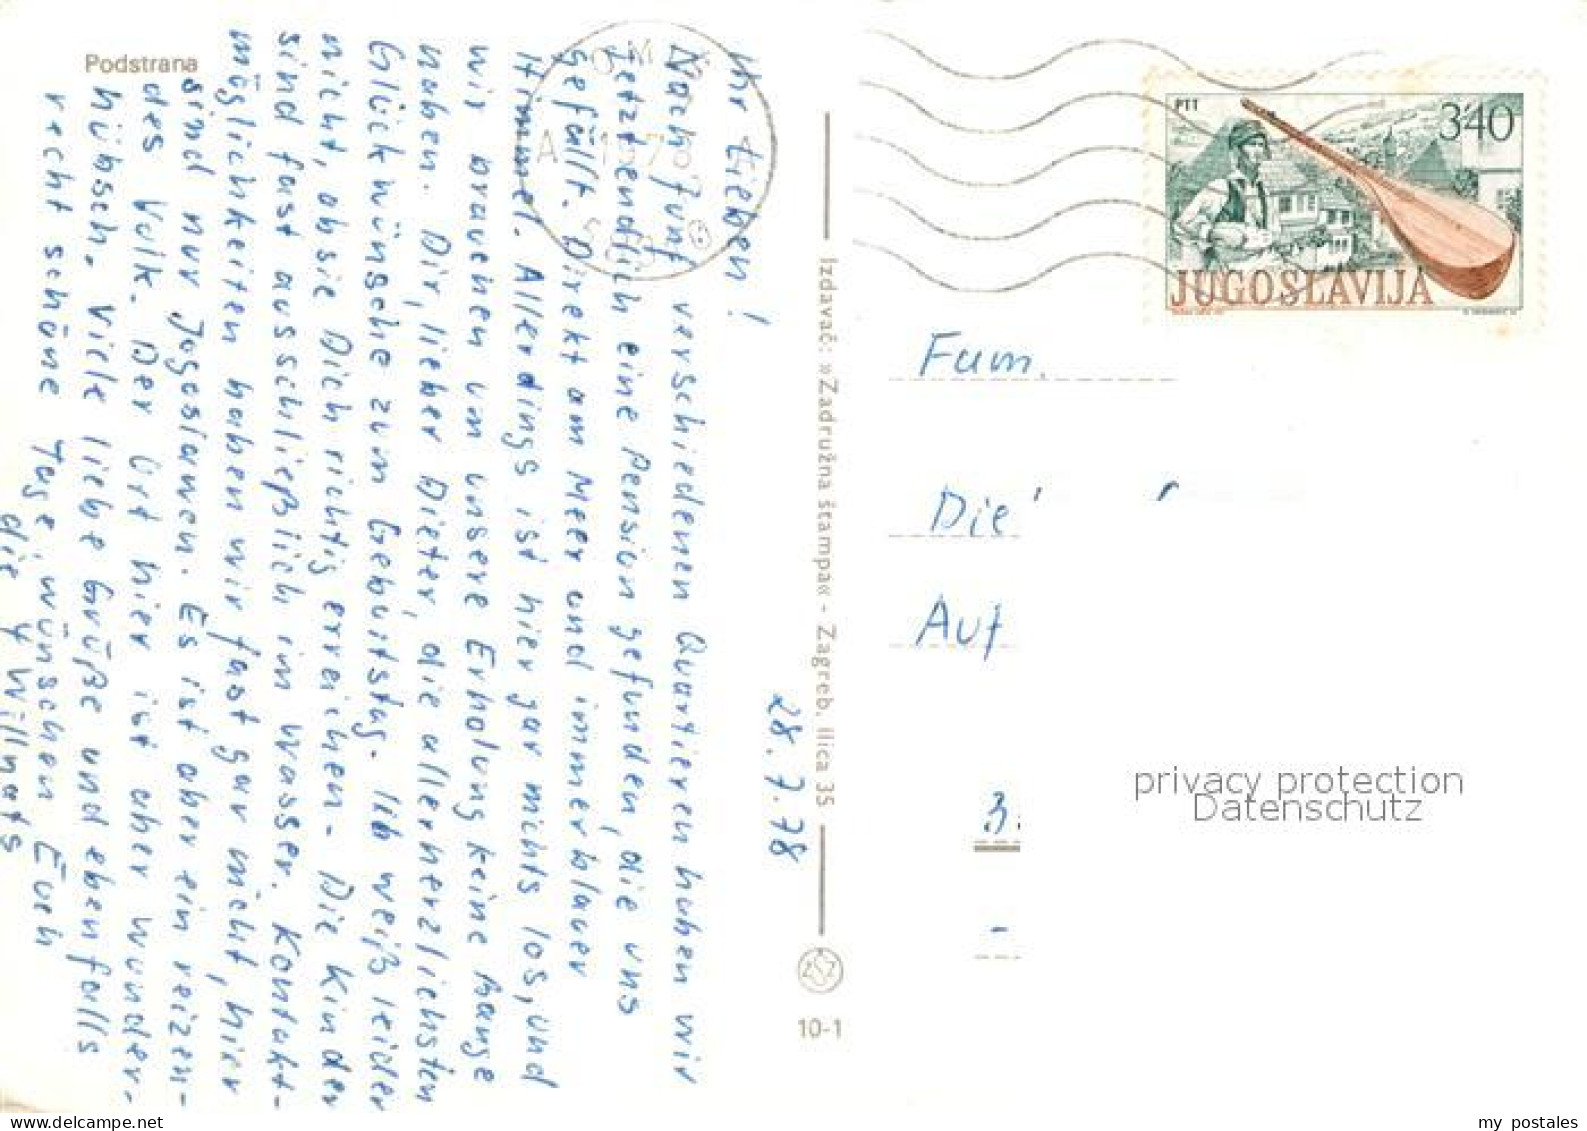 Podstrana
28.7.78
Ihr Lieben!
Nach fünf verschiedenen Quartieren haben wir
jetzt endlich eine Pension gefunden, die uns
gefällt. Direkt am Meer und immer blauer
Himmel. Allerdings ist hier gar nichts los, und
wir brauchen um unsere Erholung keine Bange
haben. Dir, lieber Dieter, die allerherzlichsten
Glückwünsche zum Geburtstag. Ich weiß leider
nicht, ob sie Dich richtig erreichen. Die Kinder
sind fast ausschließlich im Wasser. Kontakt-
möglichkeiten haben wir fast gar nicht, hier
sind nur Jugoslawen. Es ist aber ein reizen-
des Volk. Der Ort hier ist aber wunder-
hübsch. Viele liebe Grüße und ebenfalls
recht schöne Tage, wünschen Euch
die 4 Willnats
Izdavač: »Zadružna štampa« - Zagreb, Ilica 35
10-1
PTT
3'40
JUGOSLAVIJA
Fam.
Die
Auf
3
-
privacy protection
Datenschutz
www.delcampe.net
my postales